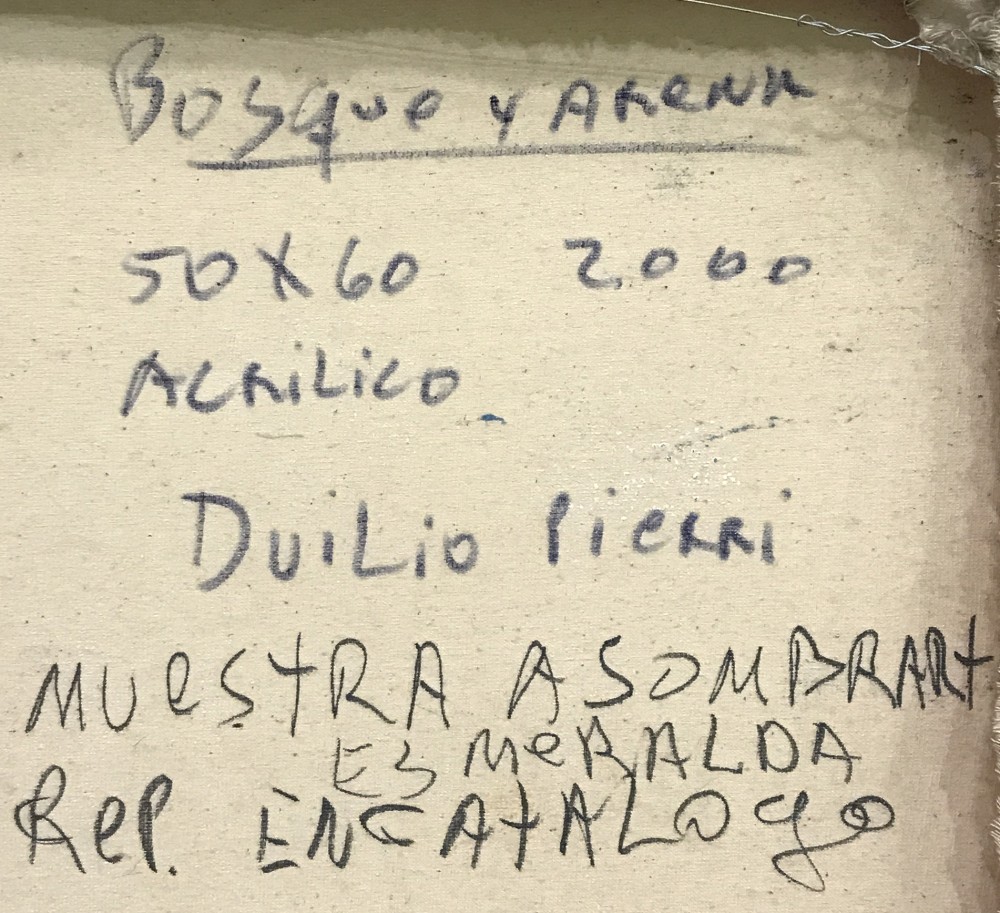 Bosque y Arena
50X60 2000
Acrilico
Duilio Pierri
MUESTRA ASOMBRART
ESMERALDA
Rep. EN CATALOgo